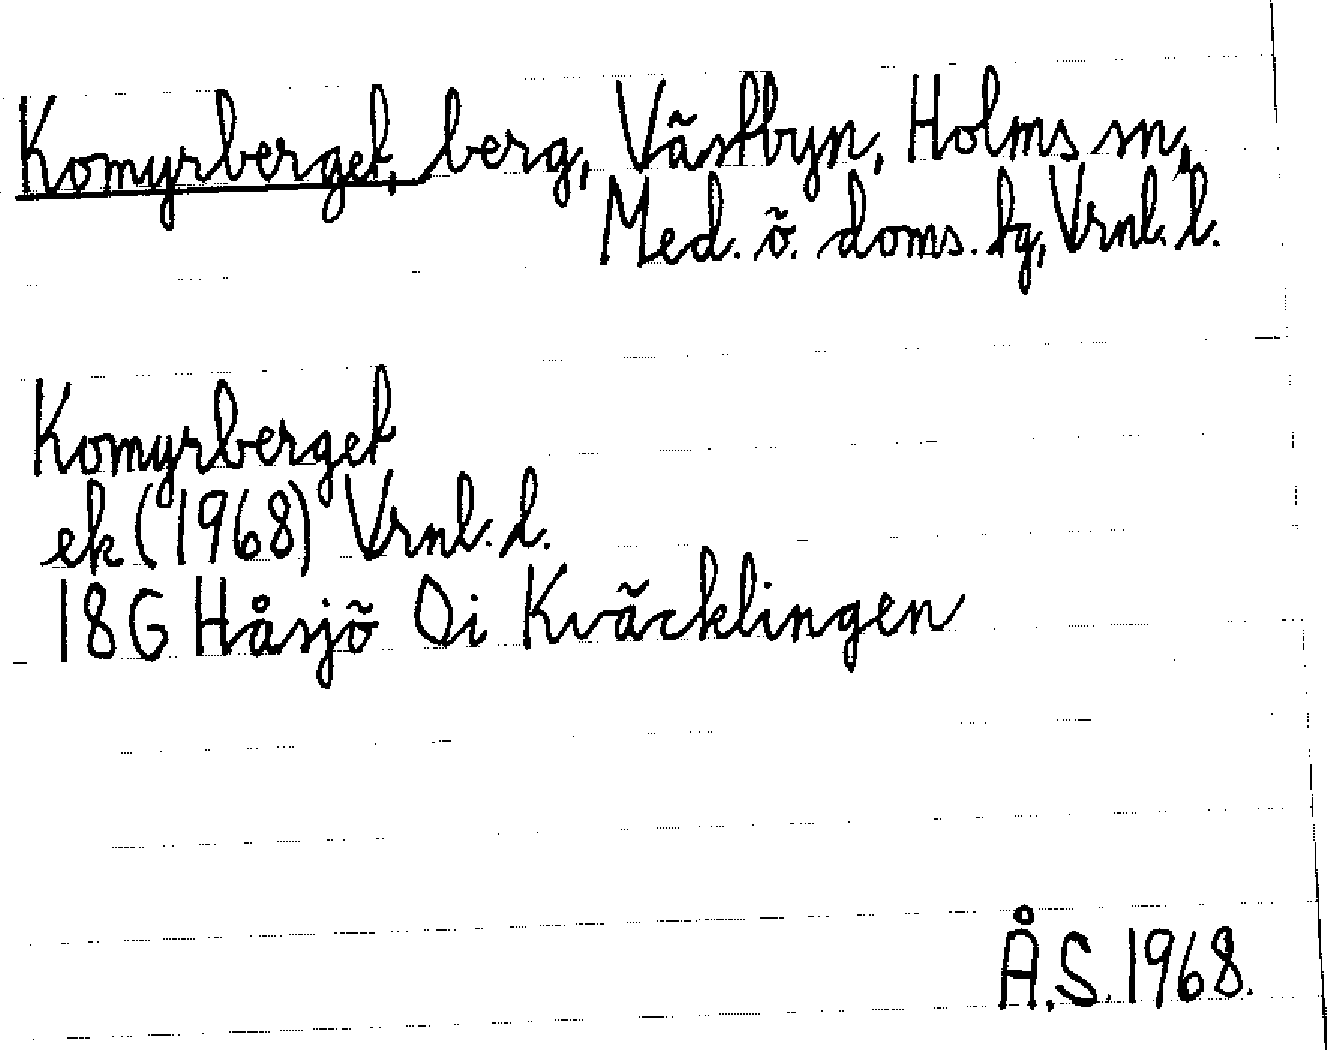 Komyrberget, berg, Västbyn, Holms sn,
Med. ö. doms. tg, Vrnl. l.
Komyrberget
ek (1968) Vrnl. l.
18G Håsjö Oi Kväcklingen
Å.S. 1968.